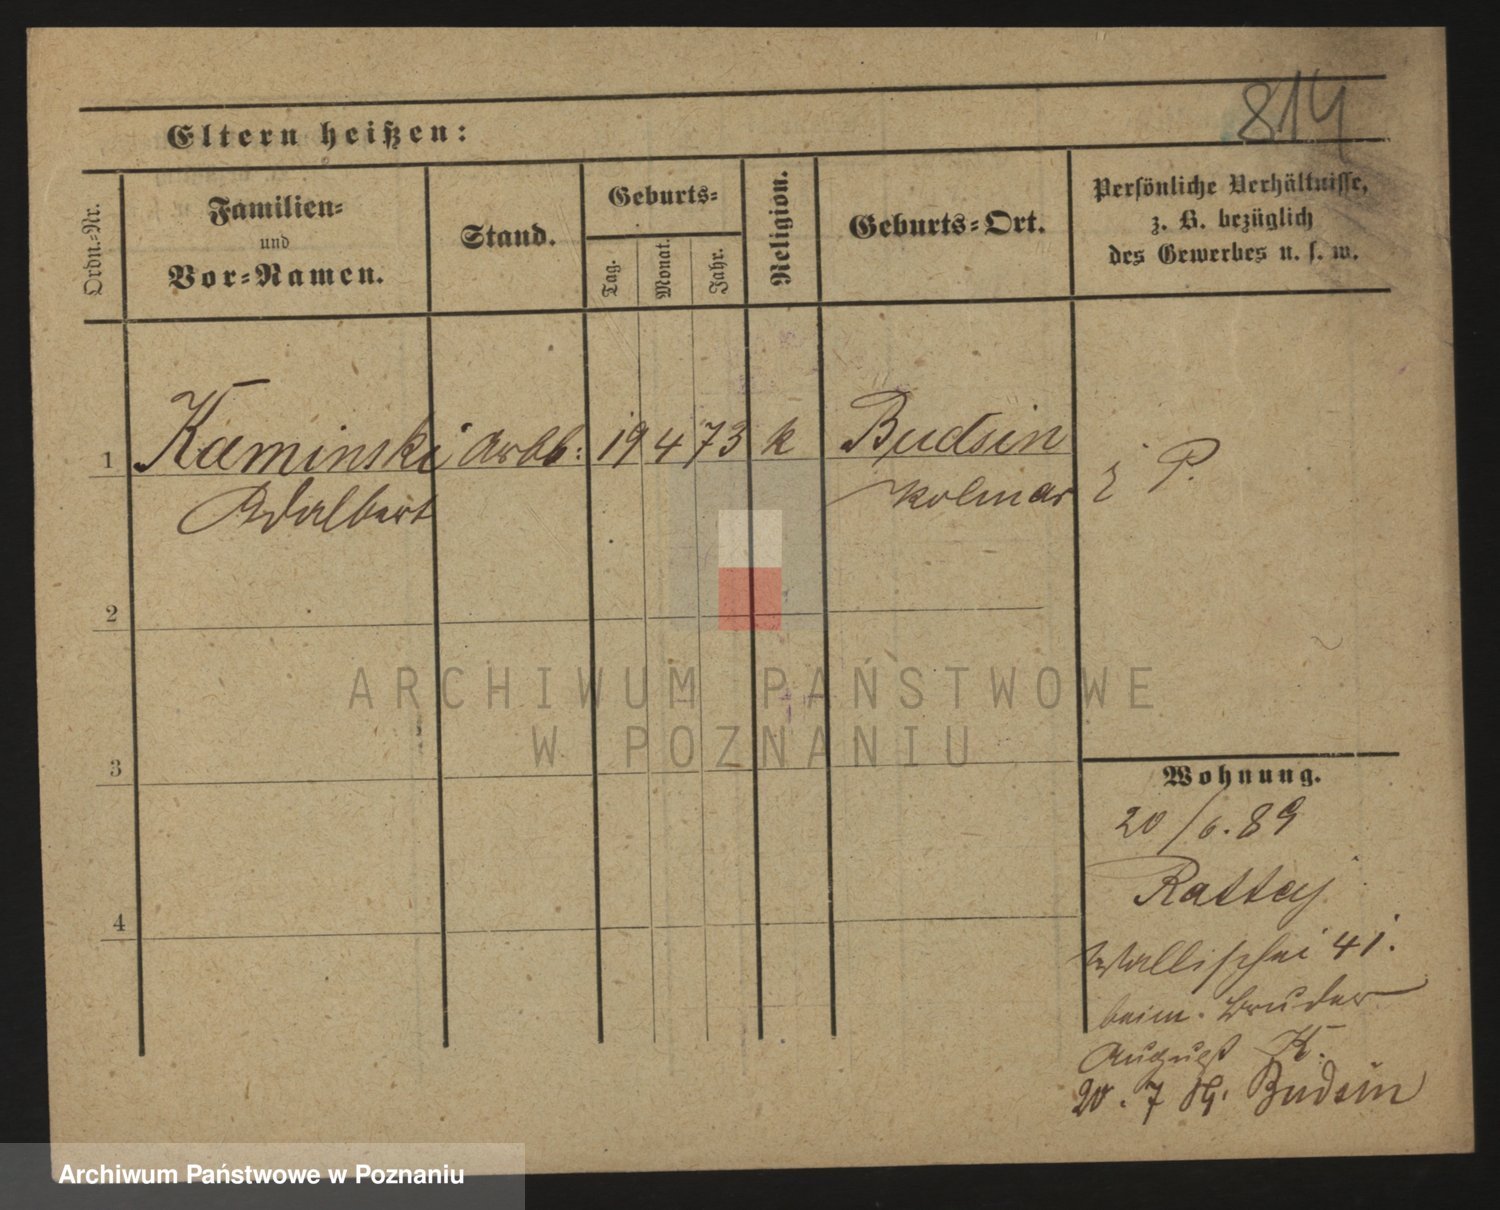 814
Eltern heißen:
Ordn.-Nr.
Familien-
und
Vor-Namen.
Stand.
Geburts-
Tag.
Monat.
Jahr.
Religion.
Geburts-Ort.
Persönliche Verhältnisse,
z. B. bezüglich
des Gewerbes u. s. w.
1 Kaminski Arbb: 19 4 73 k Budsin
Adalbert Kolmar P.
2
3
4
Wohnung.
20/6. 89
Rattaj
Wallischei 41.
beim Bruder
August K.
20. 7 89. Budsin
ARCHIWUM PAŃSTWOWE
W POZNANIU
Archiwum Państwowe w Poznaniu